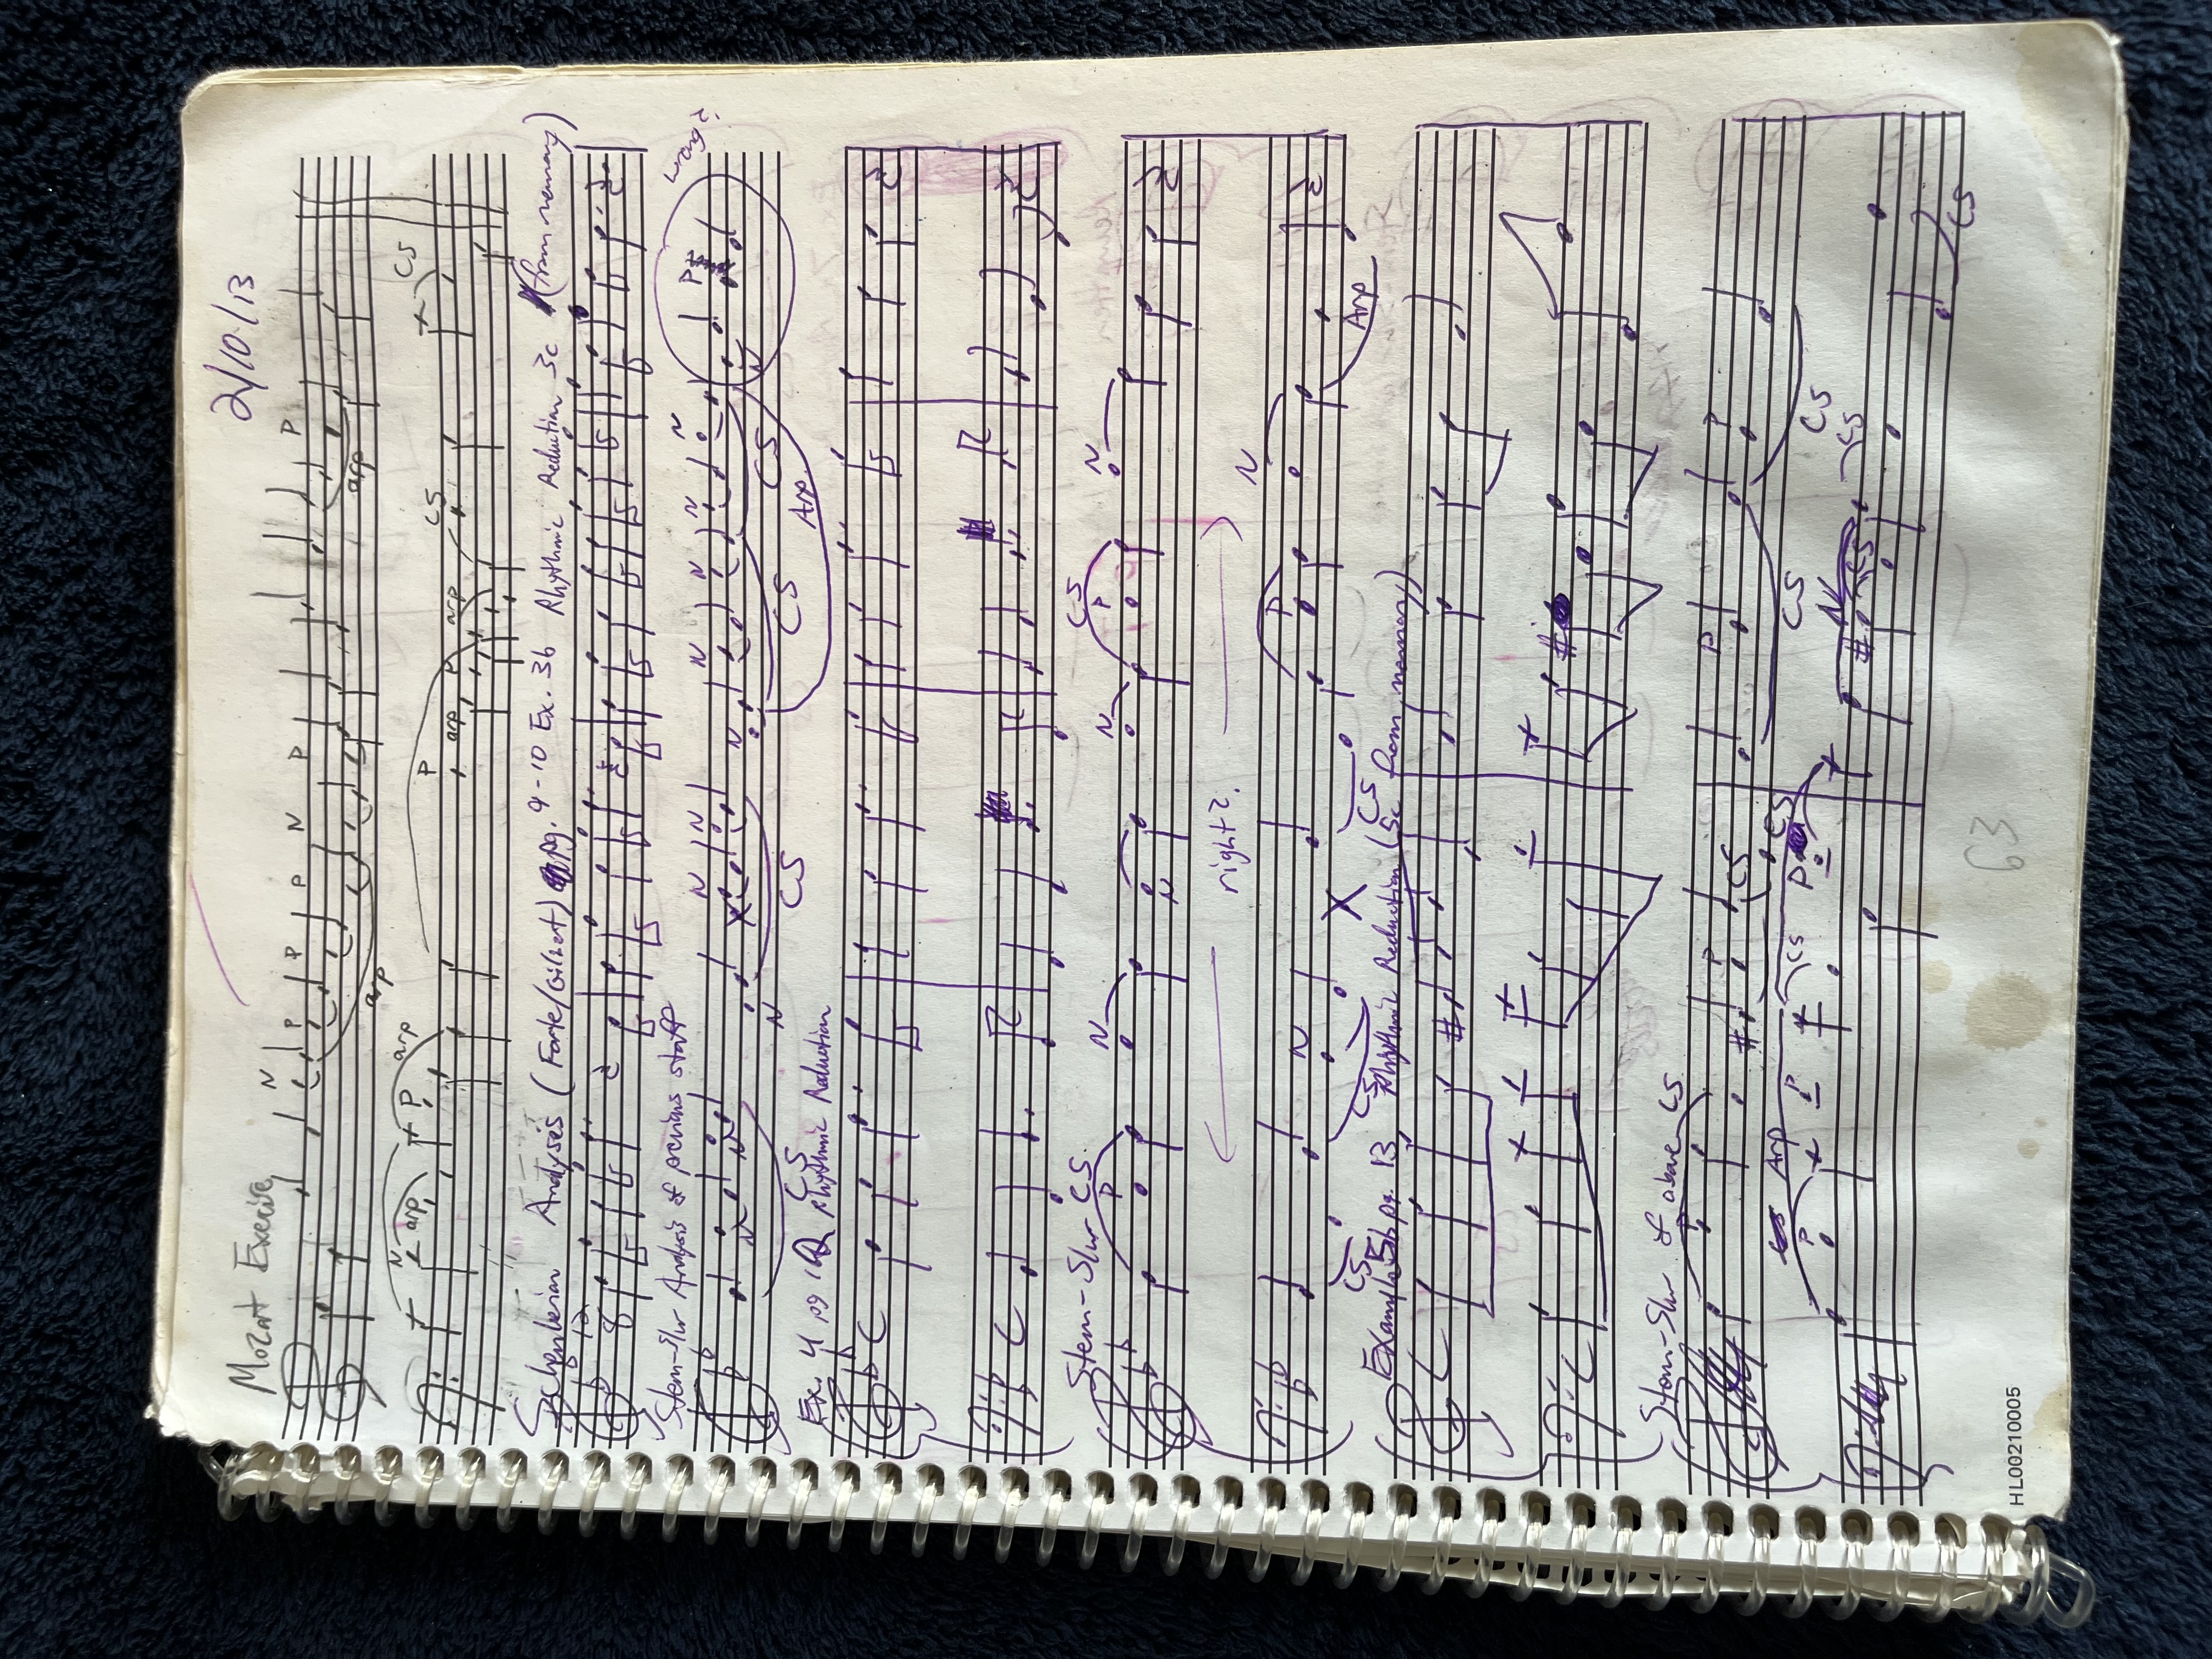 2/10/13
Mozart Exercise
N P P P N P P
arp arp
N arp P arp P arp P arp CS CS
Schenkerian Analyses (Forte/Gilbert) pg. 9-10 Ex. 3b Rhythmic Reduction 3c (from memory)
12
8
Stem-Slur Analysis of previous staff wrong?
N N N N N N N N N N P N
CS CS CS CS Arp.
Ex. 4 pg 10 Rhythmic Reduction
C
C
Stem-Slur CS P N N N CS P N
right?
N P N Arp
CS CS CS
Example 5b pg. 13 Rhythmic Reduction (5c from memory)
C
C
Stem-Slur of above CS
P P CS P P
CS CS CS
P Arp P CS P N CS CS
CS
63
HL00210005